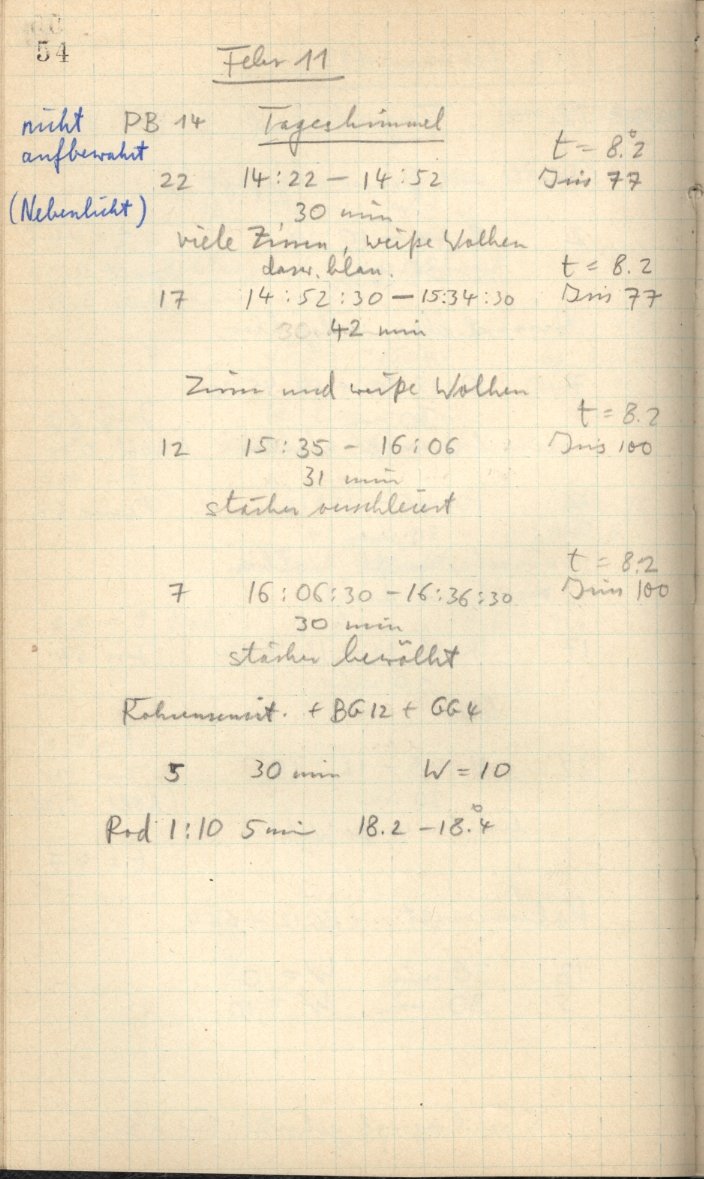 54
Febr 11
nicht aufbewahrt
(Nebenlicht)
PB 14 Tageshimmel
t = 8.°2
22 14:22 – 14:52 Iris 77
30 min
viele Zirren, weiße Wolken
dazw. blau. t = 8.2
17 14:52:30 – 15:34:30 Iris 77
42 min
Zirren und weiße Wolken
t = 8.2
12 15:35 – 16:06 Iris 100
31 min
stärker verschleiert
t = 8.2
7 16:06:30 – 16:36:30 Iris 100
30 min
stärker bewölkt
+ BG12 + GG4
5 30 min W = 10
Rod 1:10 5 min 18.2 – 18.°4